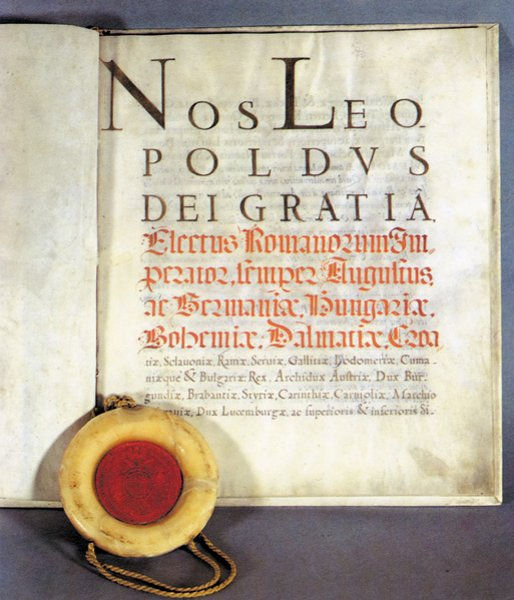 NOS LEO
POLDVS
DEI GRATIÂ
Electus Romanorum Im-
perator, semper Augustus,
ac Germaniæ, Hungariæ,
Bohemiæ, Dalmatiæ, Croa
tiæ, Sclavoniæ, Ramæ, Serviæ, Gallitiæ, Lodomeriæ, Cuma
niæque & Bulgariæ Rex, Archidux Austriæ, Dux Bur-
gundiæ, Brabantiæ, Styriæ, Carinthiæ, Carnioliæ, Marchio
Dux Lucemburgæ, ac superioris & inferioris Si-